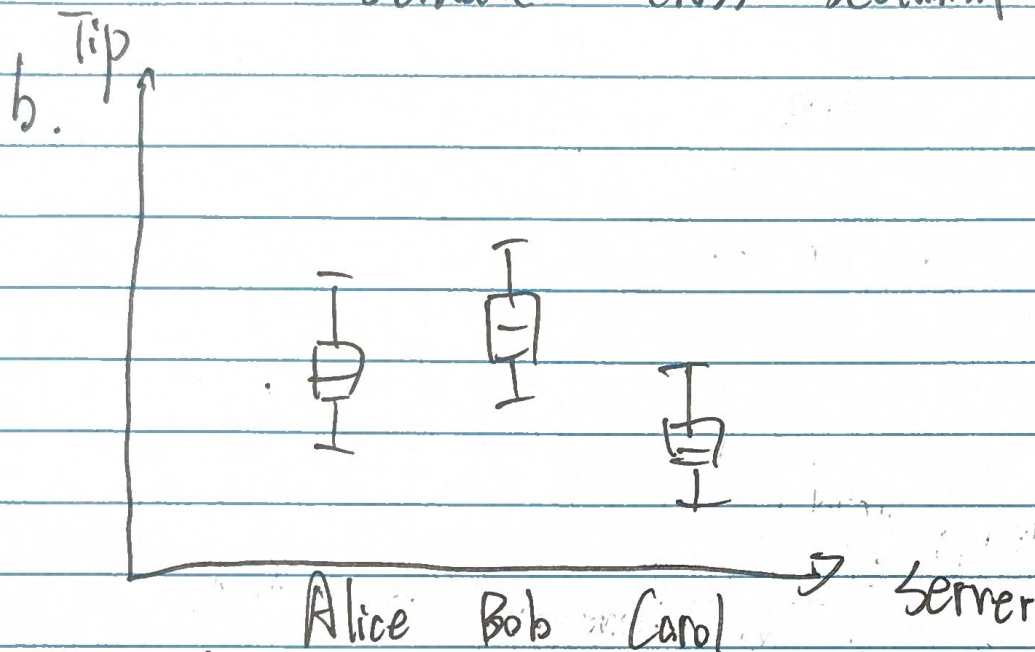 Tip
b.
Alice Bob Carol
Server